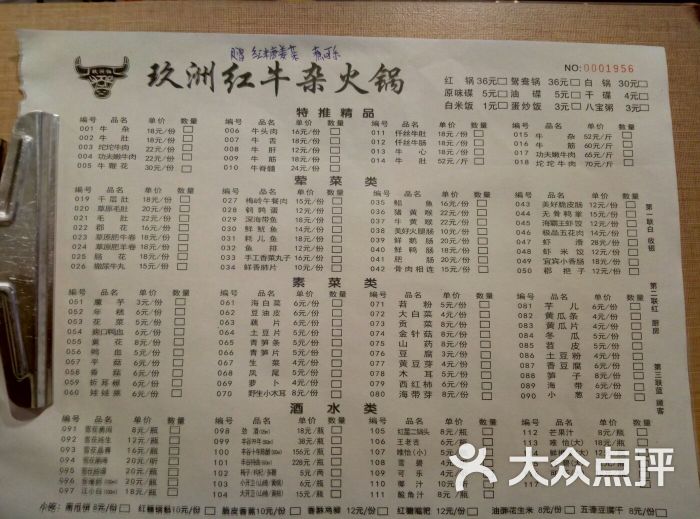 赠 红糖姜菜
玖洲红牛杂火锅
NO:0001956
红锅 36元 鸳鸯锅 36元 白锅 30元
原味碟 5元 油碟 5元 干碟 4元
白米饭 1元 蛋炒饭 3元 八宝粥 3元
特推精品
编号 品名 单价 数量 编号 品名 单价 数量 编号 品名 单价 数量 编号 品名 单价 数量
001 牛杂 18元/份 006 牛头肉 16元/份 011 仔丝牛肚 18元/份 015 牛杂 52元/斤
002 牛肚 18元/份 007 牛舌 18元/份 012 仔丝牛肠 18元/份 016 牛筋 60元/斤
003 坨坨牛肉 22元/份 008 牛肝 12元/份 013 牛心 18元/份 017 功夫嫩牛肉 65元/斤
004 功夫嫩牛肉 22元/份 009 牛筋 20元/份 014 牛肚 52元/斤 018 坨坨牛肉 70元/斤
005 牛鞭花 30元/份 010 牛脊髓 24元/份
荤菜类
编号 品名 单价 数量 编号 品名 单价 数量 编号 品名 单价 数量 编号 品名 单价 数量
019 千层肚 18元/份 027 梅岭午餐肉 15元/份 035 鲳鱼 16元/份 043 美好脆皮肠 12元/份
020 草原毛肚 20元/份 028 鹌鹑蛋 12元/份 036 猪黄喉 22元/份 044 无骨鸭掌 15元/份
021 毛肚 22元/份 029 深海带鱼 12元/份 037 牛黄喉 22元/份 045 海霸王虾饺 12元/份
022 郡花 16元/份 030 鲜鱿鱼 14元/份 038 美好火腿肠 12元/份 046 极品五花肉 14元/份
023 草原肥牛卷 18元/份 031 耗儿鱼 18元/份 039 鲜鹅肠 20元/份 047 虾滑 28元/份
024 草原肥羊卷 18元/份 032 鱼排 12元/份 040 鲜鸭肠 18元/份 048 虾米饺 12元/份
025 脑花 12元/份 033 手工香菜丸子 16元/份 041 肥肠 20元/份 049 宜宾小香肠 18元/份
026 撒尿牛丸 15元/份 034 鲜香肺片 10元/份 042 骨肉相连 12元/份 050 郡把子 12元/份
素菜类
编号 品名 单价 数量 编号 品名 单价 数量 编号 品名 单价 数量 编号 品名 单价 数量
051 魔芋 3元/份 061 海白菜 6元/份 071 苕粉 5元/份 081 芋儿 6元/份
052 年糕 6元/份 062 豆油皮 6元/份 072 大白菜 4元/份 082 黄瓜条 4元/份
053 花菜 5元/份 063 藕片 6元/份 073 贡菜 8元/份 083 黄瓜片 4元/份
054 064 土豆片 4元/份 074 金针菇 6元/份 084 冬瓜 5元/份
055 黄花 8元/份 065 青笋条 5元/份 075 山药 8元/份 085 苕皮 5元/份
056 鸭血 5元/份 066 青笋片 5元/份 076 豆腐 3元/份 086 土豆粉 4元/份
057 平菇 6元/份 067 生菜 4元/份 077 黄豆芽 4元/份 087 香豆腐 6元/份
058 香菇 6元/份 068 凤尾 5元/份 078 木耳 5元/份 088 笋子 8元/份
059 折耳根 6元/份 069 萝卜 4元/份 079 西红柿 4元/份 089 海带 5元/份
060 娃娃菜 6元/份 070 野生小木耳 8元/份 080 海带芽 6元/份 090 小葱 3元/份
第一联白 收银
第二联红 厨房
第三联蓝 顾客
酒水类
编号 品名 单价 数量 编号 品名 单价 数量 编号 品名 单价 数量 编号 品名 单价 数量
091 8元/瓶 098 劲酒 18元/瓶 105 红星二锅头 112 芒果汁 8元/瓶
092 099 38元/瓶 106 王老吉 113 唯怡(大)
093 100 156元/瓶 107 唯怡(小) 114
094 101 228元/瓶 108 雪碧 115
095 102 5元/两 109 可乐 116
096 103 110 椰汁 117
097 江小白 104 111 酸角汁
小吃: 红糖锅盔 10元/份 脆皮香蕉 10元/份 香酥鸡柳 12元/份 红糖糍粑 12元/份 油酥花生米 8元/份 五香豆干 8元/份
大众点评